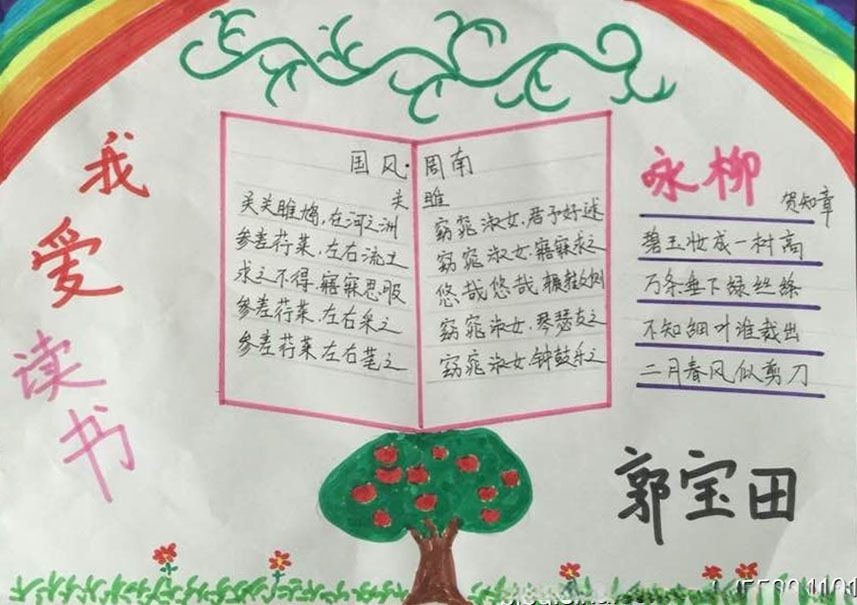 我爱读书
国风·周南
关雎
关关雎鸠,在河之洲 窈窕淑女,君子好逑
参差荇菜,左右流之 窈窕淑女,寤寐求之
求之不得,寤寐思服 悠哉悠哉,辗转反侧
参差荇菜,左右采之 窈窕淑女,琴瑟友之
参差荇菜,左右芼之 窈窕淑女,钟鼓乐之
咏柳
贺知章
碧玉妆成一树高
万条垂下绿丝绦
不知细叶谁裁出
二月春风似剪刀
郭宝田